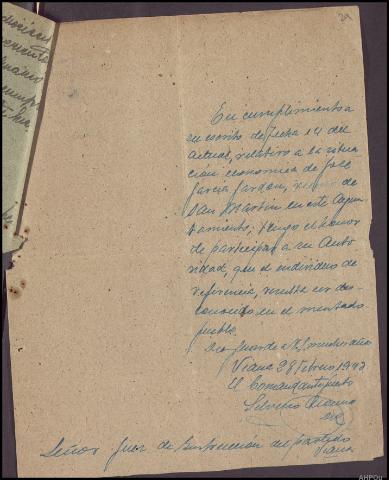 29
En cumplimiento a
su escrito de fecha 14 del
actual, relativo a la situa
ción economica de José
García Jardon, de
San Martin en este Ayun
tamiento, tengo el honor
de participar a su Auto
ridad, que el individuo de
referencia, resulta ser des
conocido en el mentado
pueblo.
Dios guarde a V. muchos años
Viana 28 Febrero 1942
El Comandante Puesto
Señor Juez de Instrucción del partido
Viana
AHPOu